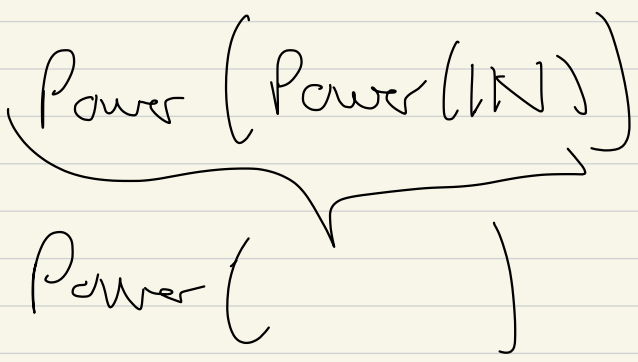 Power (Power (ℕ))
Power (          )